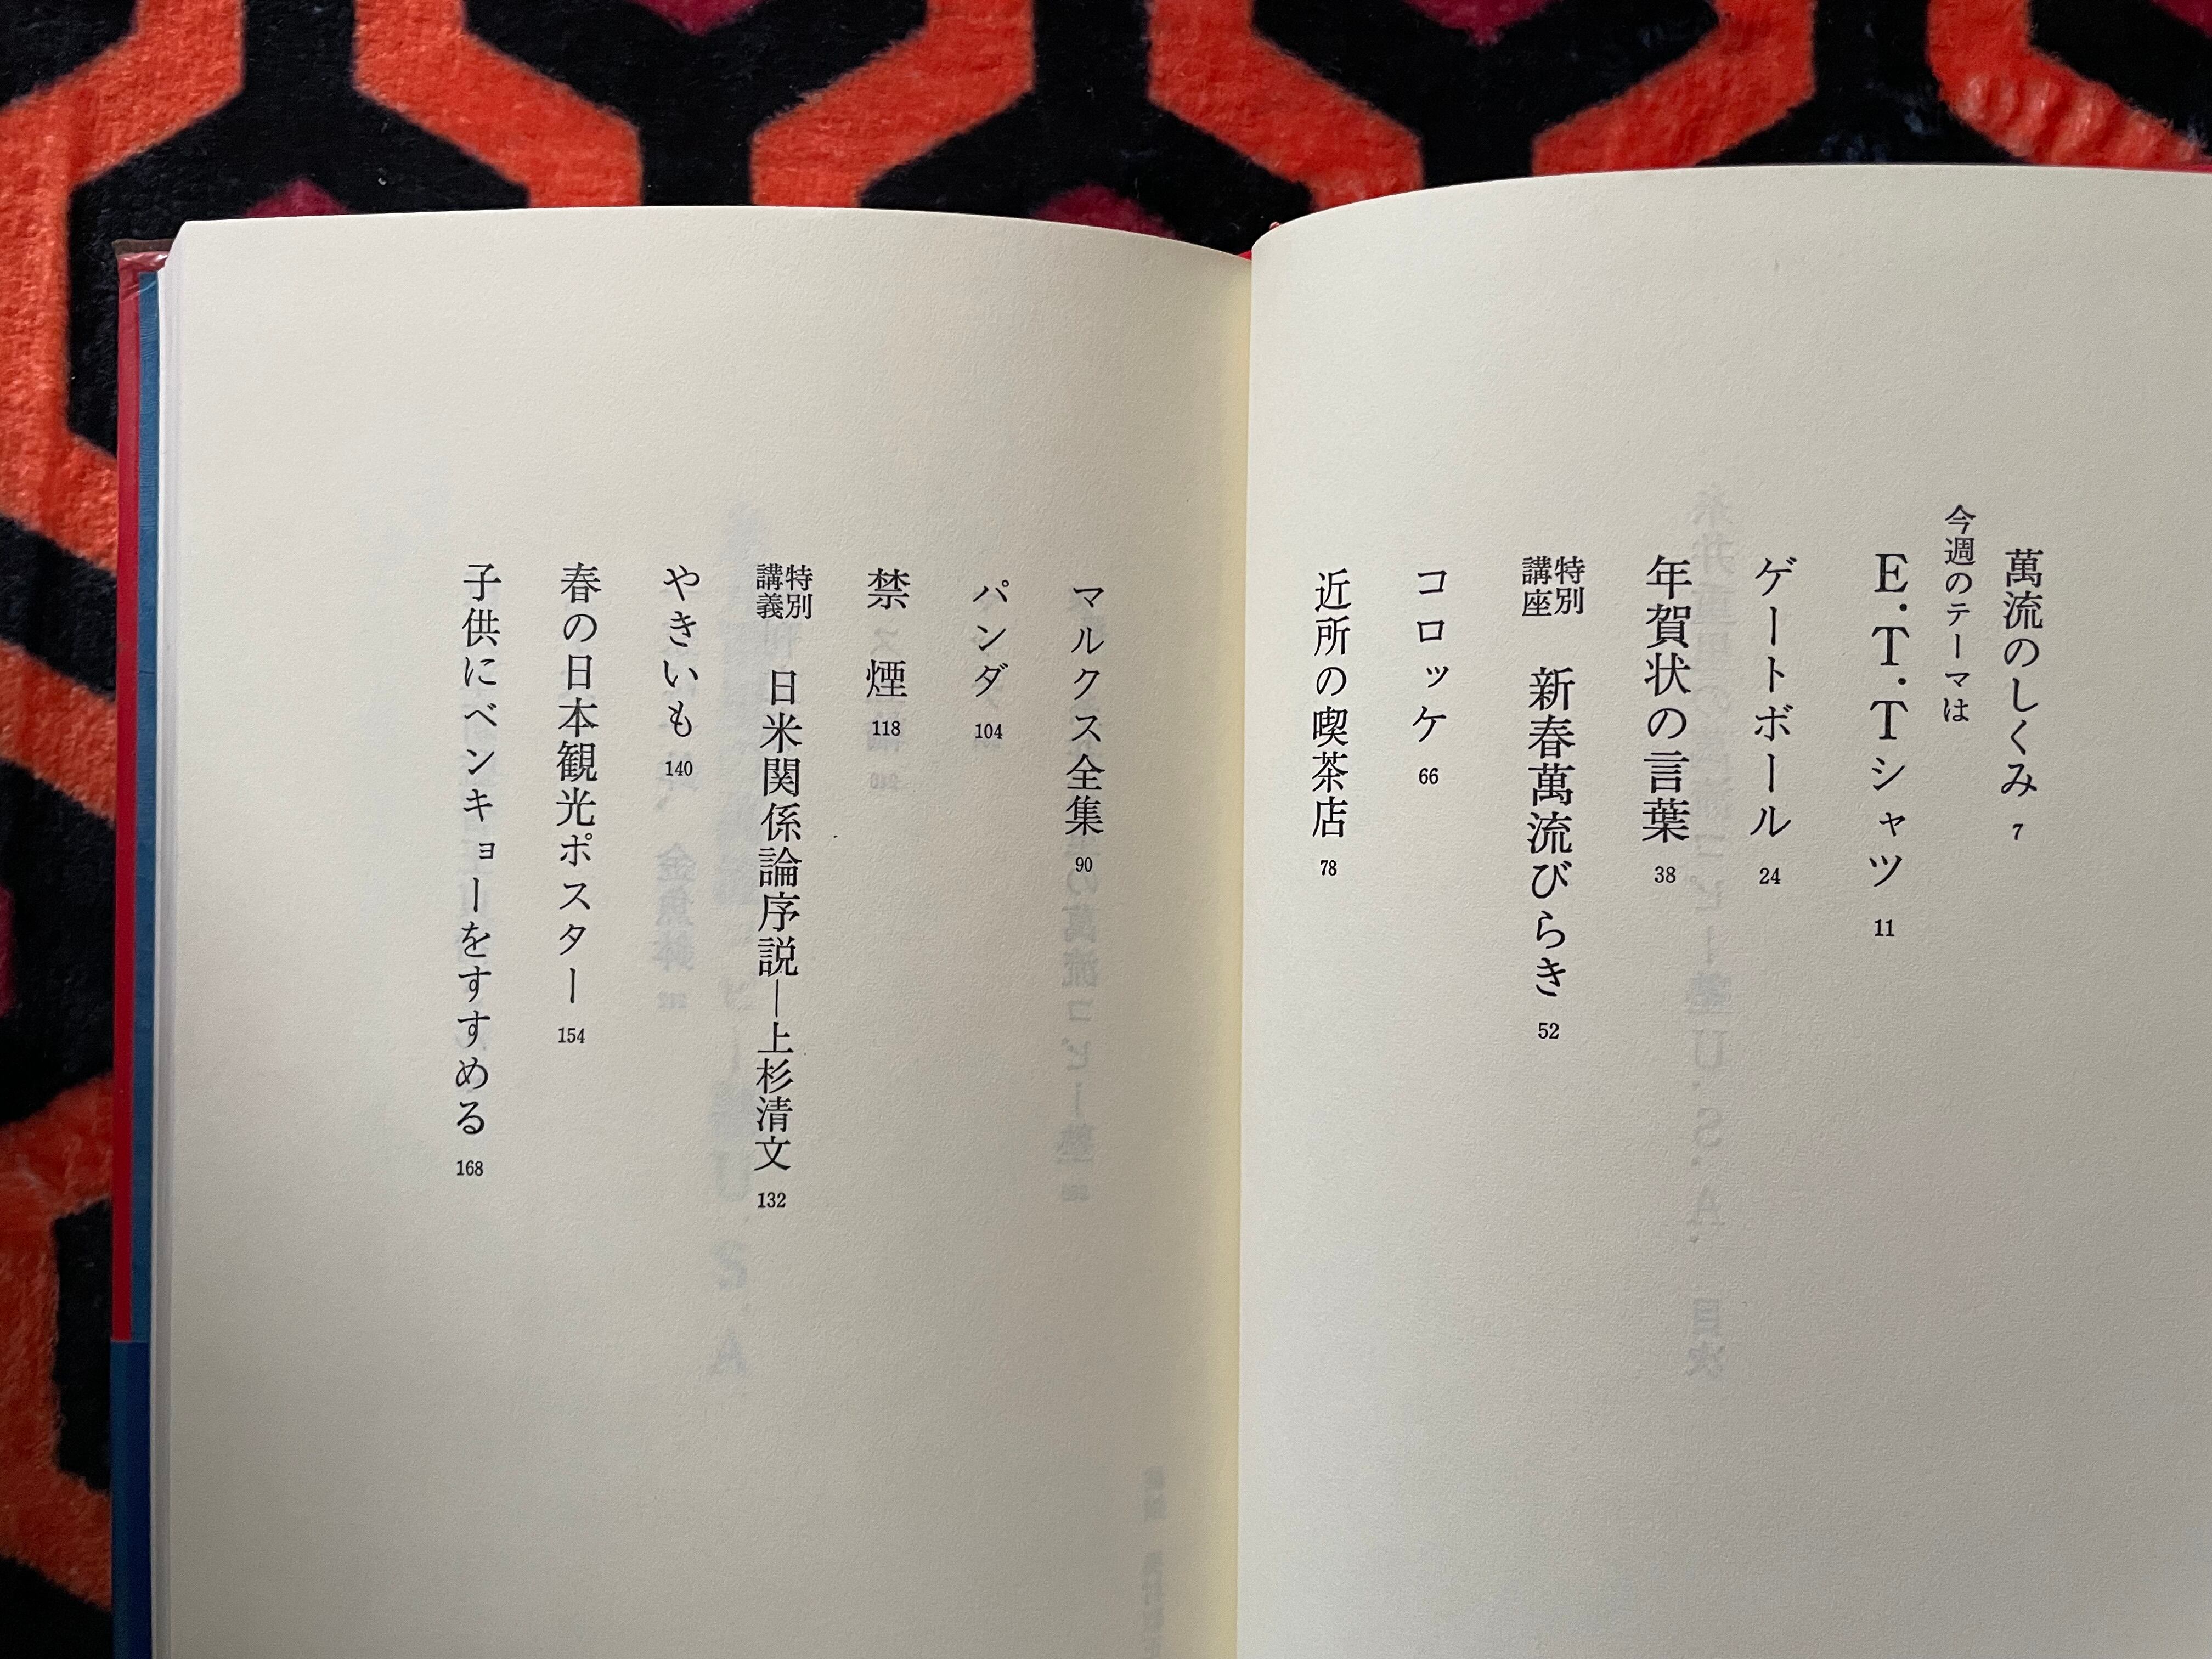 萬流のしくみ 7
今週のテーマは
E.T.Tシャツ 11
ゲートボール 24
年賀状の言葉 38
特別講座 新春萬流びらき 52
コロッケ 66
近所の喫茶店 78
マルクス全集 90
パンダ 104
禁煙 118
特別講義 日米関係論序説—上杉清文 132
やきいも 140
春の日本観光ポスター 154
子供にベンキョーをすすめる 168